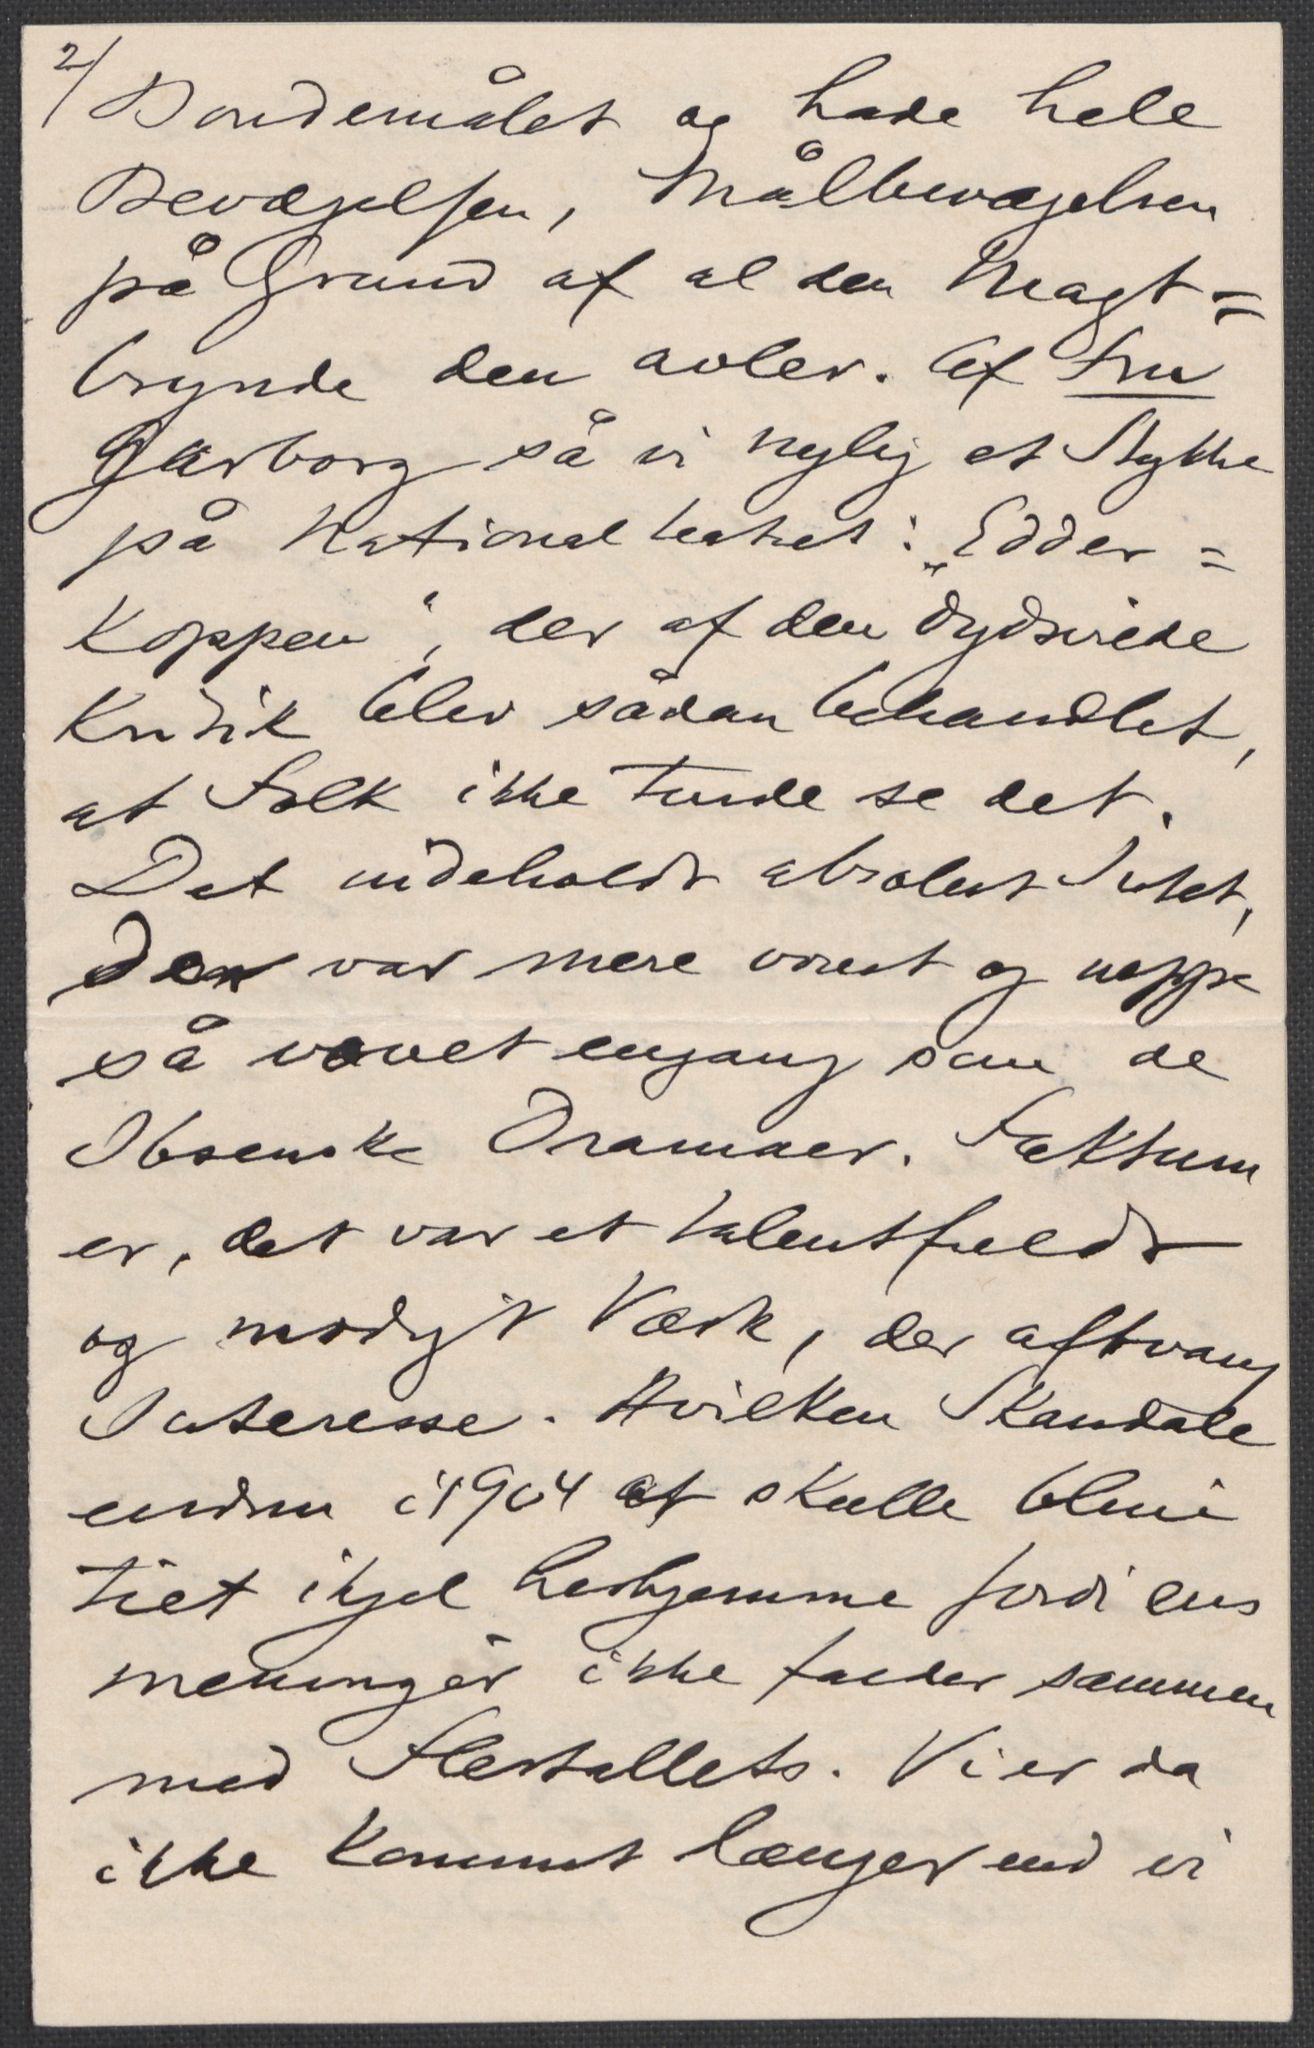 2/
Bondemålet og hade hele
Bevægelsen, Målbevægelsen
på Grund af al den Magt=
brynde den avler. Af Fru
Garborg så vi nylig et Stykke
på Nationalteatret: „Edder=
koppen", der af den dydsirede
Kritik blev sådan behandlet,
at Folk ikke turde se det.
Det indeholdt absolut Intet,
der var mere vovet og neppe
så vovet engang som de
Ibsenske Dramaer. Faktum
er, det var et talentfuldt
og modigt Værk, der aftvang
Interesse. Hvilken Skandale
endnu i 1904 at skulle blive
tiet ihjel herhjemme fordi ens
meninger ikke falder sammen
med Flertallets. Vi er da
ikke kommet længer end vi